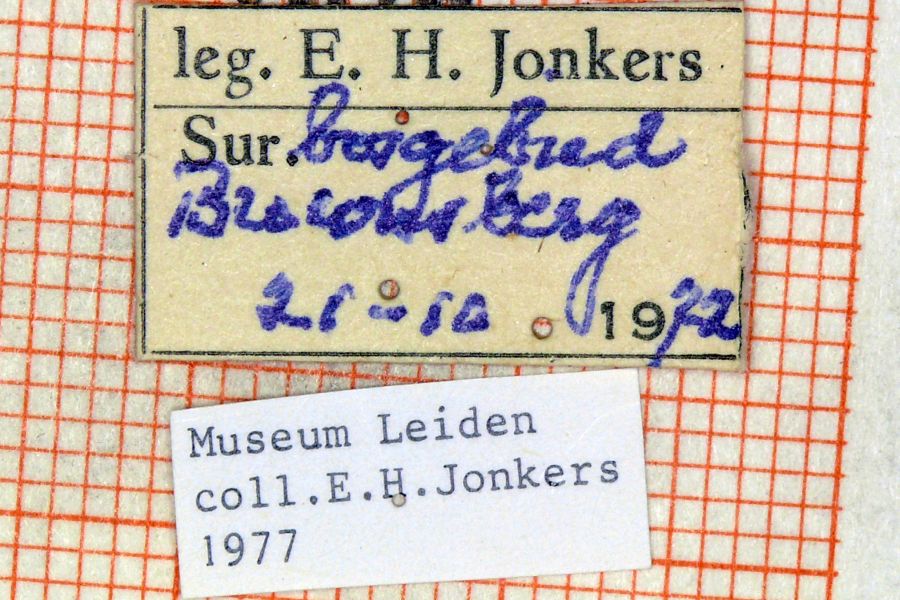 leg. E. H. Jonkers
Sur. bosgebied
berg
21-10 1972
Museum Leiden
coll.E.H.Jonkers
1977